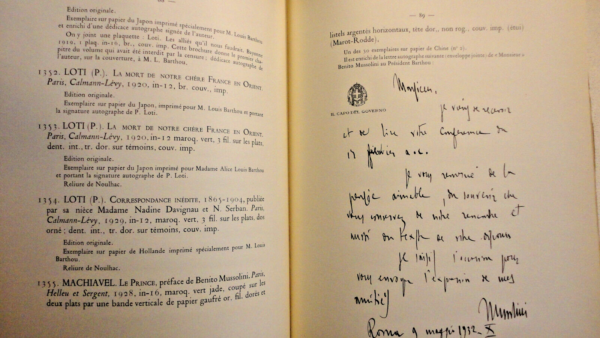 Edition originale.
Exemplaire sur papier du Japon imprimé spécialement pour M. Louis Barthou
et enrichi d'une dédicace autographe signée de l'auteur.
On y joint une plaquette : Loti. Les alliés qu'il nous faudrait. Bayonne
1919, 1 plaq. in-16, br., couv. imp. Cette brochure donne le premier cha-
pitre du volume qui avait été interdit par la censure ; dédicace autographe de
l'auteur, sur la couverture, à M. L. Barthou.
1352. LOTI (P.). La mort de notre chère France en Orient.
Paris, Calmann-Lévy, 1920, in-12, br. couv., imp.
Edition originale.
Exemplaire sur papier du Japon, imprimé pour M. Louis Barthou et portant
la signature autographe de P. Loti.
1353. LOTI (P.). La mort de notre chère France en Orient.
Paris, Calmann-Lévy, 1920, in-12 maroq. vert, 3 fil. sur les plats,
dent. int., tr. dor. sur témoins, couv. imp.
Edition originale.
Exemplaire sur papier du Japon imprimé pour Madame Alice Louis Barthou
et portant la signature autographe de P. Loti.
Reliure de Noulhac.
1354. LOTI (P.). Correspondance inédite, 1865-1904, publiée
par sa nièce Madame Nadine Davignau et N. Serban. Paris,
Calmann-Lévy, 1929, in-12, maroq. vert, 3 fil. sur les plats, dos
orné : dent. int., tr. dor. sur témoins, couv. imp.
Edition originale.
Exemplaire sur papier de Hollande imprimé spécialement pour M. Louis
Barthou.
Reliure de Noulhac.
1355. MACHIAVEL. Le Prince, préface de Benito Mussolini. Paris,
Helleu et Sergent, 1928, in-16, maroq. vert jade, coupé sur les
deux plats par une bande verticale de papier gaufré or, fil. dorés et
— 89 —
listels argentés horizontaux, tête dor., non rog., couv. imp. (étui)
(Marot-Rodde).
Un des 20 exemplaires sur papier de Chine (nº 2).
Il est enrichi de la lettre autographe suivante : enveloppe jointe : de « Monsieur »
Benito Mussolini au Président Barthou.
IL CAPO DEL GOVERNO
Monsieur,
je viens de recevoir
et de lire votre Conférence du
je vous remercie de la
aimable, du souvenir que
vous conservez de notre rencontre et
aussi du texte de votre discours
je saisis l'occasion pour
vous envoyer l'expression de mes
amitiés
Mussolini
Roma 9 maggio 1932 X